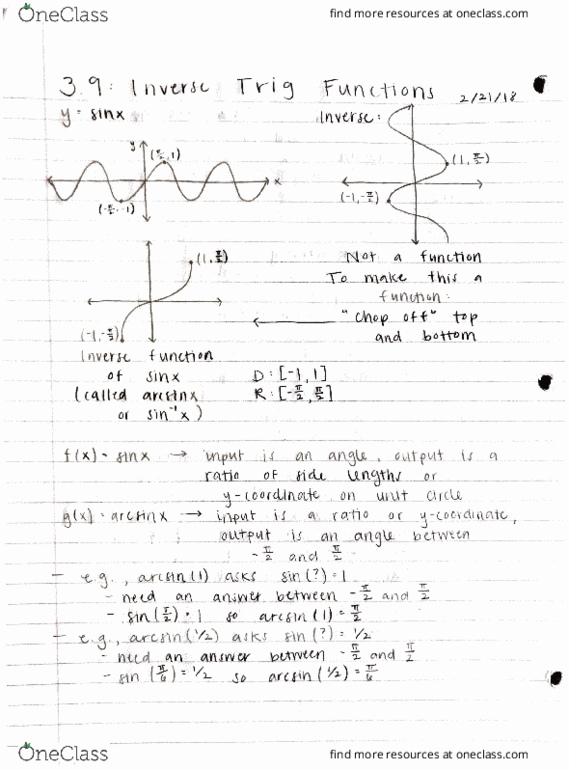 OneClass
find more resources at oneclass.com
3.9: Inverse Trig Functions 2/21/18
y = sinx
Inverse:
y
(π/2, 1)
x
(-π/2, -1)
(1, π/2)
(-1, -π/2)
(1, π/2)
(-1, -π/2)
Not a function
To make this a
function:
"chop off" top
and bottom
Inverse function
of sinx
(called arcsinx
or sin⁻¹x)
D: [-1, 1]
R: [-π/2, π/2]
f(x) = sinx → input is an angle, output is a
ratio of side lengths or
y-coordinate on unit circle
g(x) = arcsinx → input is a ratio or y-coordinate,
output is an angle between
-π/2 and π/2
- e.g., arcsin(1) asks sin(?) = 1
- need an answer between -π/2 and π/2
- sin(π/2) = 1 so arcsin(1) = π/2
- e.g., arcsin(1/2) asks sin(?) = 1/2
- need an answer between -π/2 and π/2
- sin(π/6) = 1/2 so arcsin(1/2) = π/6
OneClass
find more resources at oneclass.com